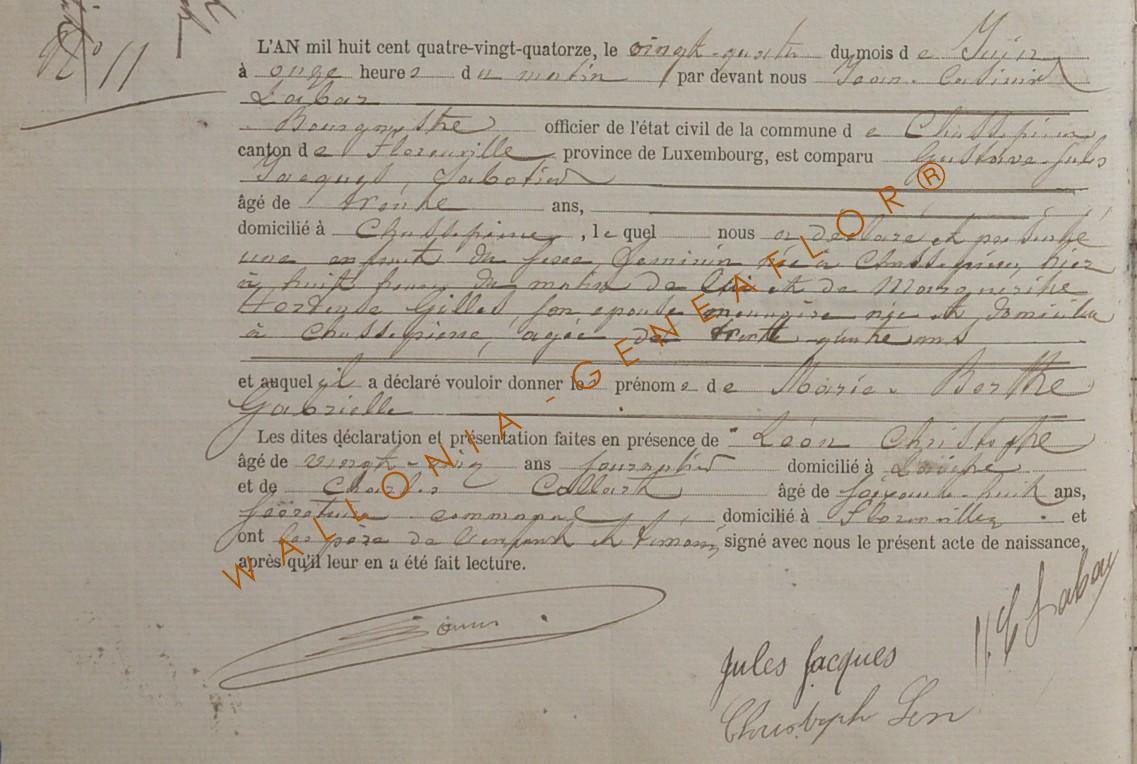 N° 11
L'AN mil huit cent quatre-vingt-quatorze, le vingt-quatre du mois de Juin
à onze heures du matin par devant nous Jean-Casimir
Labar
Bourgmestre officier de l'état civil de la commune de Chassepierre
canton de Florenville province de Luxembourg, est comparu Gustave-Jules
Jacques,
âgé de trente ans,
domicilié à Chassepierre, lequel nous a déclaré et présenté
une enfant du sexe féminin née à Chassepierre, hier
à huit heures du matin de lui et de Marguerite
Hortense Gilles son épouse ménagère née et domiciliée
à Chassepierre, agée de trente ans
et auquel il a déclaré vouloir donner les prénoms de Marie-Berthe
Gabrielle
Les dites déclaration et présentation faites en présence de Léon Christophe
âgé de vingt-cinq ans domicilié à
et de Charles Collart âgé de soixante-huit ans,
secrétaire communal domicilié à Florenville et
ont les père de l'enfant et témoins signé avec nous le présent acte de naissance,
après qu'il leur en a été fait lecture.
WALLONIA - GENEAFLOR ®
Labar
Jules Jacques
Christoph Léon